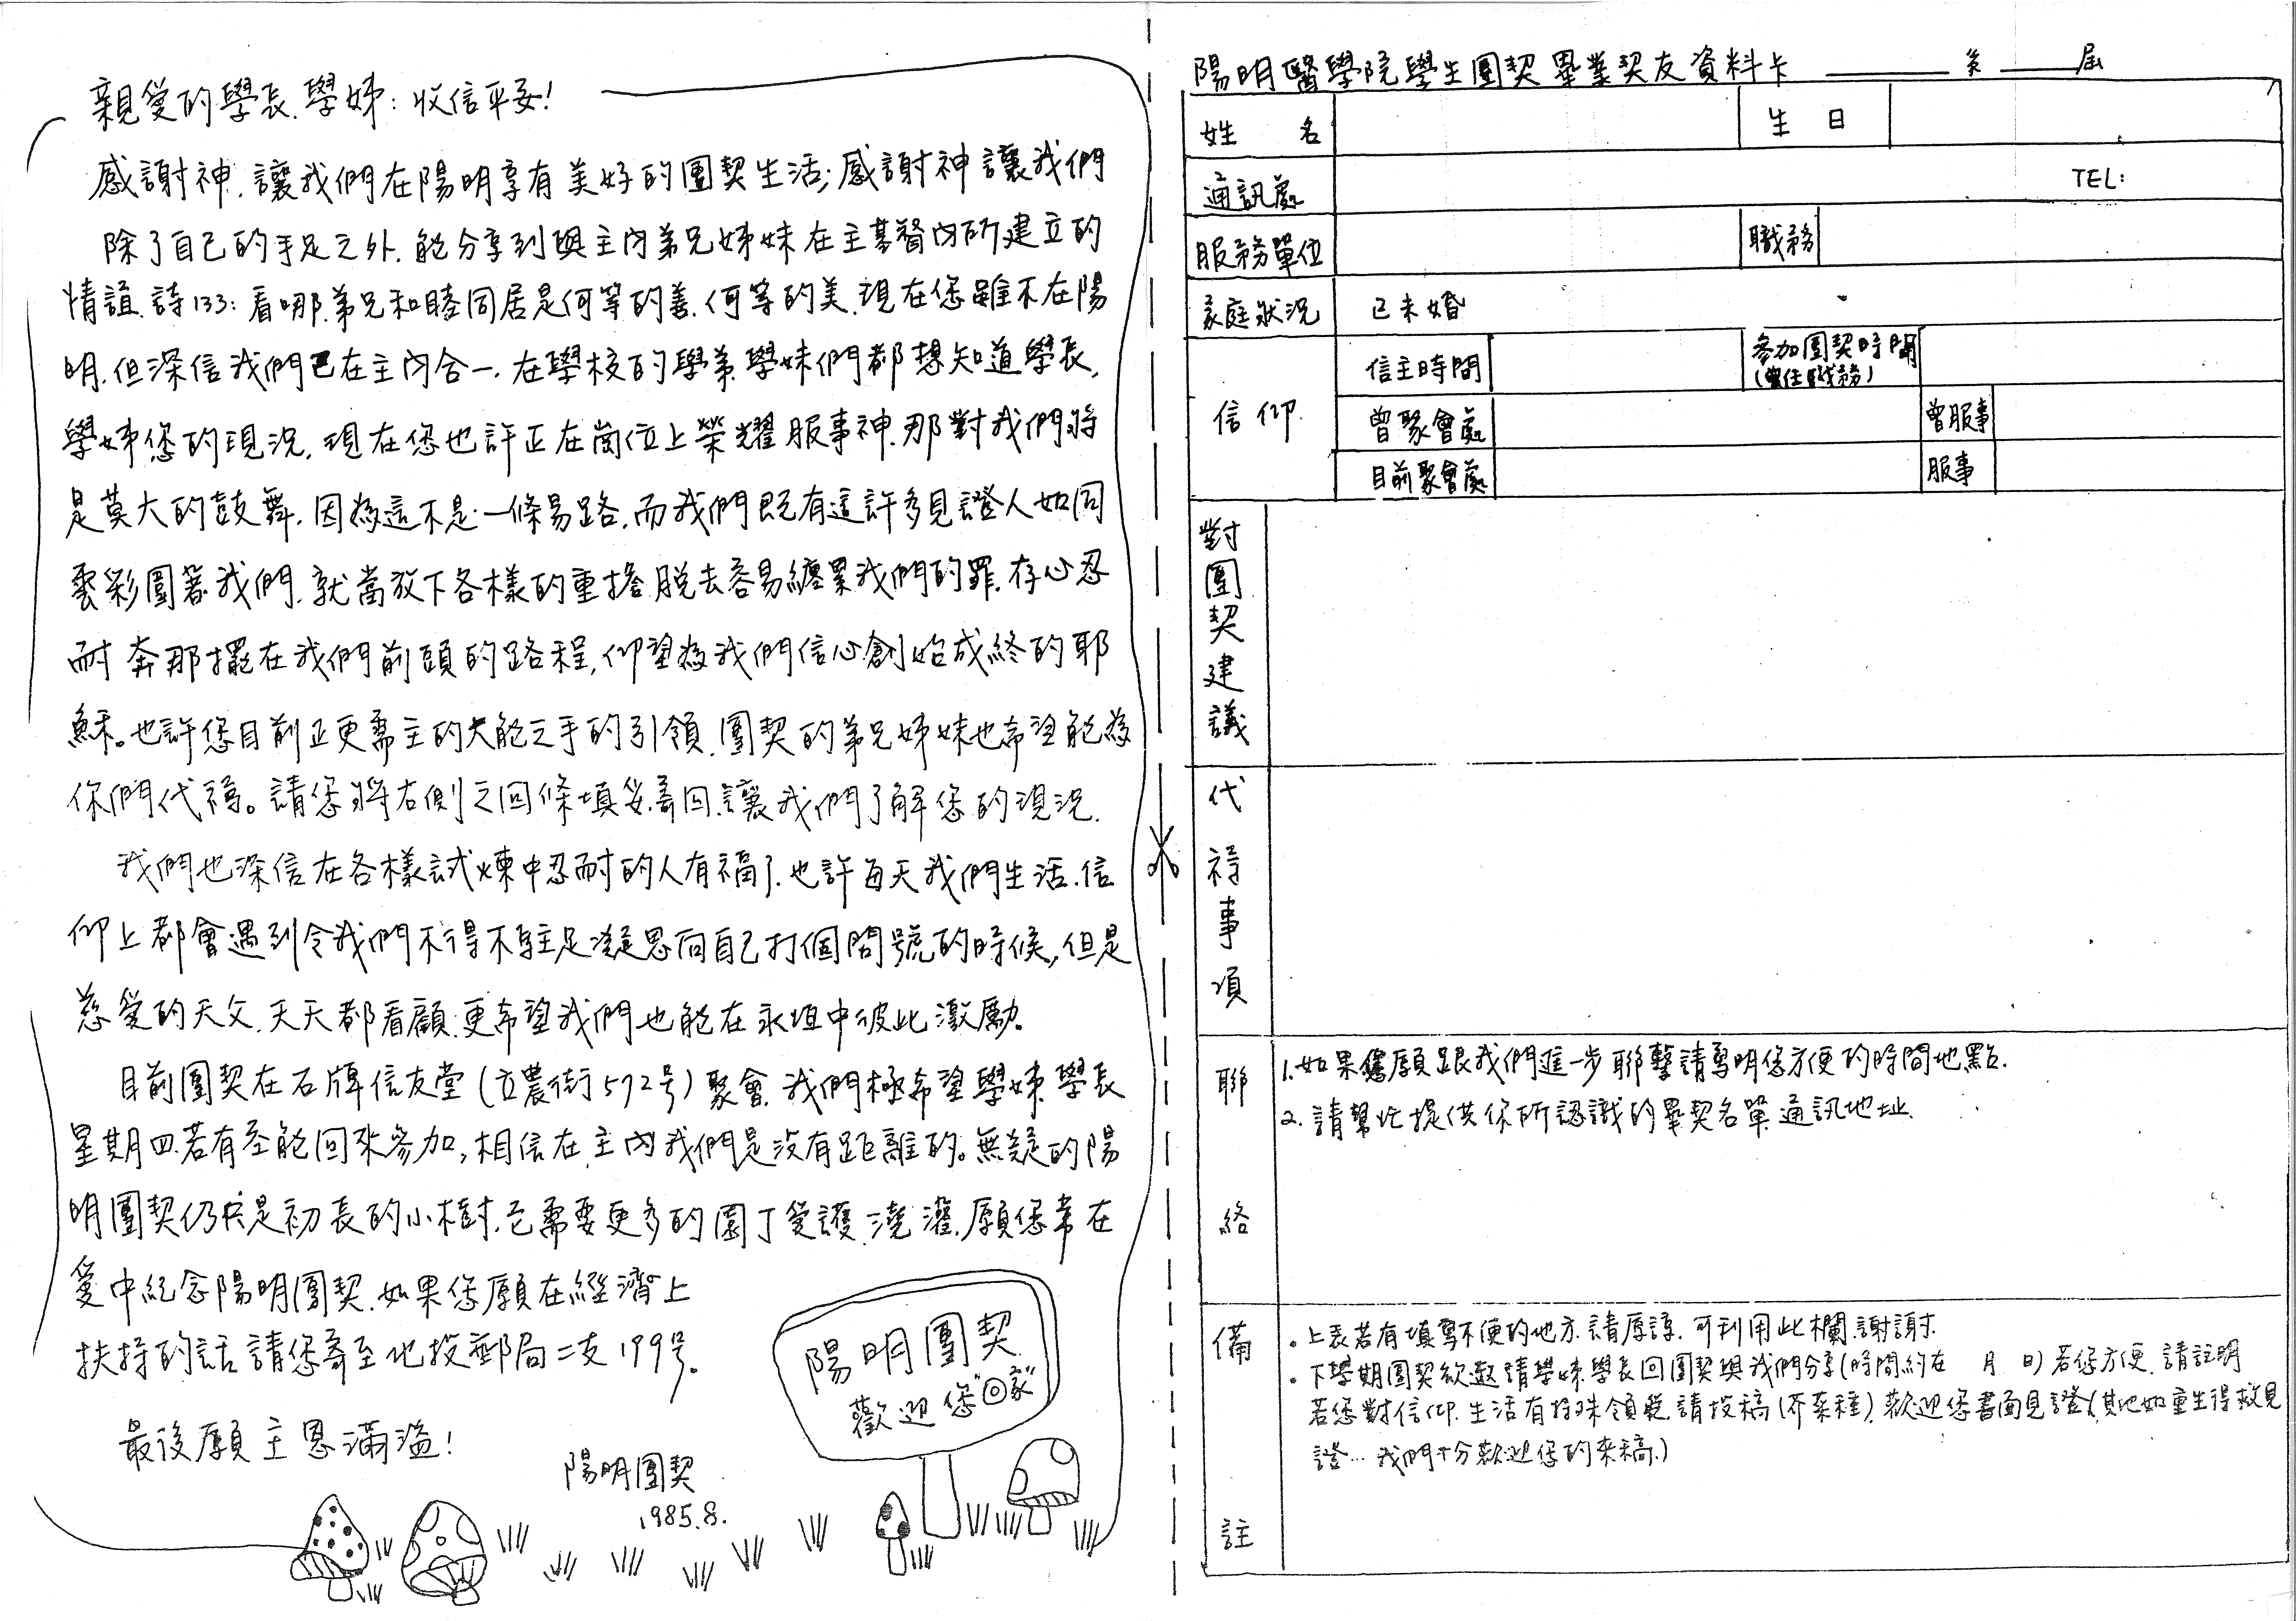 親愛的學長.學姊：收信平安！
感謝神.讓我們在陽明享有美好的團契生活;感謝神讓我們
除了自己的手足之外.能分享到與主內弟兄姊妹在主基督內所建立的
情誼.詩133:看哪.弟兄和睦同居是何等的善.何等的美.現在您雖不在陽
明.但深信我們已在主內合一.在學校的學弟.學妹們都想知道學長.
學姊您的現況.現在您也許正在崗位上榮耀服事神.那對我們將
是莫大的鼓舞.因為這不是一條易路.而我們既有這許多見證人如同
雲彩圍著我們.就當放下各樣的重擔.脫去容易纏累我們的罪.存心忍
耐奔那擺在我們前頭的路程,仰望為我們信心創始成終的耶
穌。也許您目前正更需主的大能之手的引領.團契的弟兄姊妹也希望能為
你們代禱。請您將右側之回條填妥.寄回.讓我們了解您的現況.
我們也深信在各樣試煉中忍耐的人有福了.也許每天我們生活.信
仰上都會遇到令我們不得不駐足凝思向自己打個問號的時候,但是
慈愛的天父.天天都看顧.更希望我們也能在永恆中彼此激勵。
目前團契在石牌信友堂(立農街572号)聚會.我們極希望學姊.學長
星期四若有空能回來參加,相信在主內我們是沒有距離的。無疑的陽
明團契仍只是初長的小樹.它需要更多的園丁愛護.澆灌.願您常在
愛中紀念陽明團契.如果您願在經濟上
扶持的話請您寄至北投郵局二支199号。
最後願主恩滿溢！
陽明團契
1985.8.
陽明團契
歡迎您"回家"
陽明醫學院學生團契畢業契友資料卡 ______ 系 ____屆
姓 名
生 日
通訊處
TEL:
服務單位
職務
家庭狀況
已未婚
信仰.
信主時間
參加團契時間
(曾任職務)
曾聚會處
曾服事
目前聚會處
服事
對團契建議
代禱事項
聯絡
1.如果您願跟我們進一步聯繫請寫明您方便的時間地點.
2.請幫忙提供你所認識的畢契名單.通訊地址.
備註
。上表若有填寫不便的地方.請原諒.可利用此欄.謝謝.
。下學期團契欲邀請學姊.學長回團契與我們分享(時間約在 月 日)若您方便.請註明
若您對信仰.生活有特殊領悟.請投稿(芥菜種).歡迎您書面見證(其他如重生得救見
證…我們十分歡迎您的來稿.)